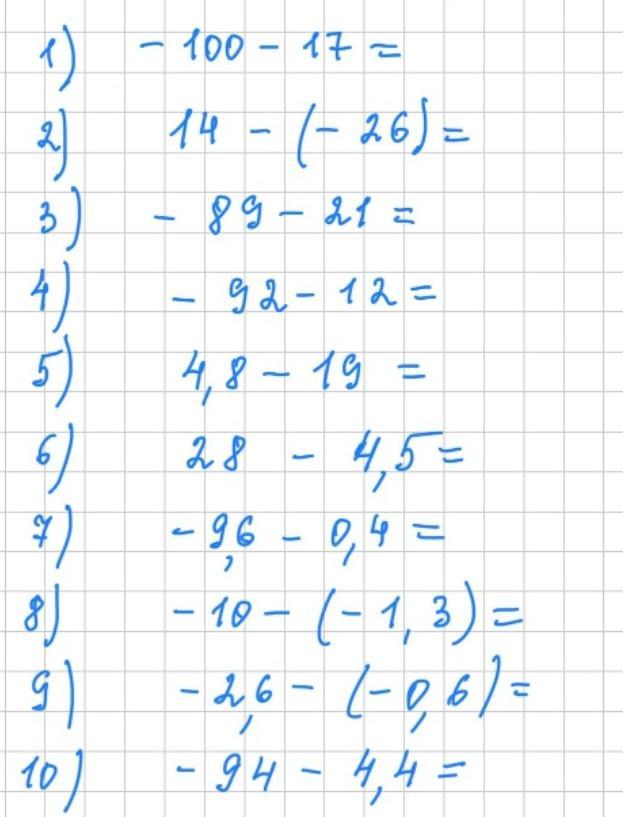 1) - 100 - 17 =
2) 14 - (- 26) =
3) - 89 - 21 =
4) - 92 - 12 =
5) 4,8 - 19 =
6) 28 - 4,5 =
7) - 9,6 - 0,4 =
8) - 10 - (- 1,3) =
9) - 2,6 - (- 0,6) =
10) - 94 - 4,4 =